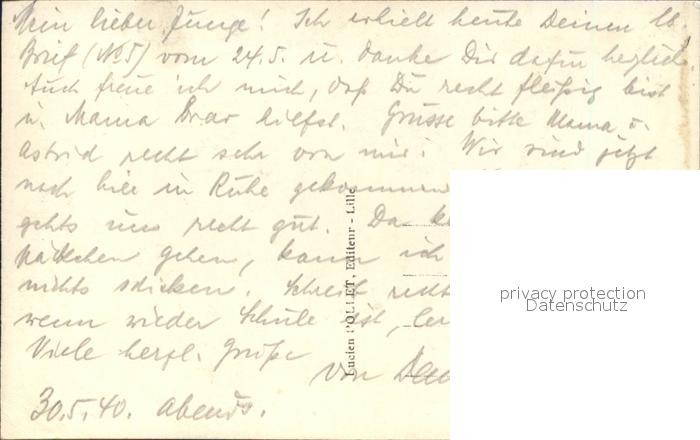 Mein lieber Junge! Ich erhielt heute Deinen lb.
Brief (No 5) vom 24.5. u. danke Dir dafür herzlich.
Auch freue ich mich, daß Du recht fleißig bist
u. Mama brav hilfst. Grüsse bitte Mama u.
Astrid recht sehr von mir! Wir sind jetzt
nach hier in Ruhe gekommen
gehts uns recht gut. Da k
päckchen gehen, kann ich
nichts schicken. Schreib recht
wenn wieder Schule ist, ler
Viele herzl. Grüße
von
30.5.40. abends.
Lucien POLLET, Editeur - Lille
privacy protection
Datenschutz